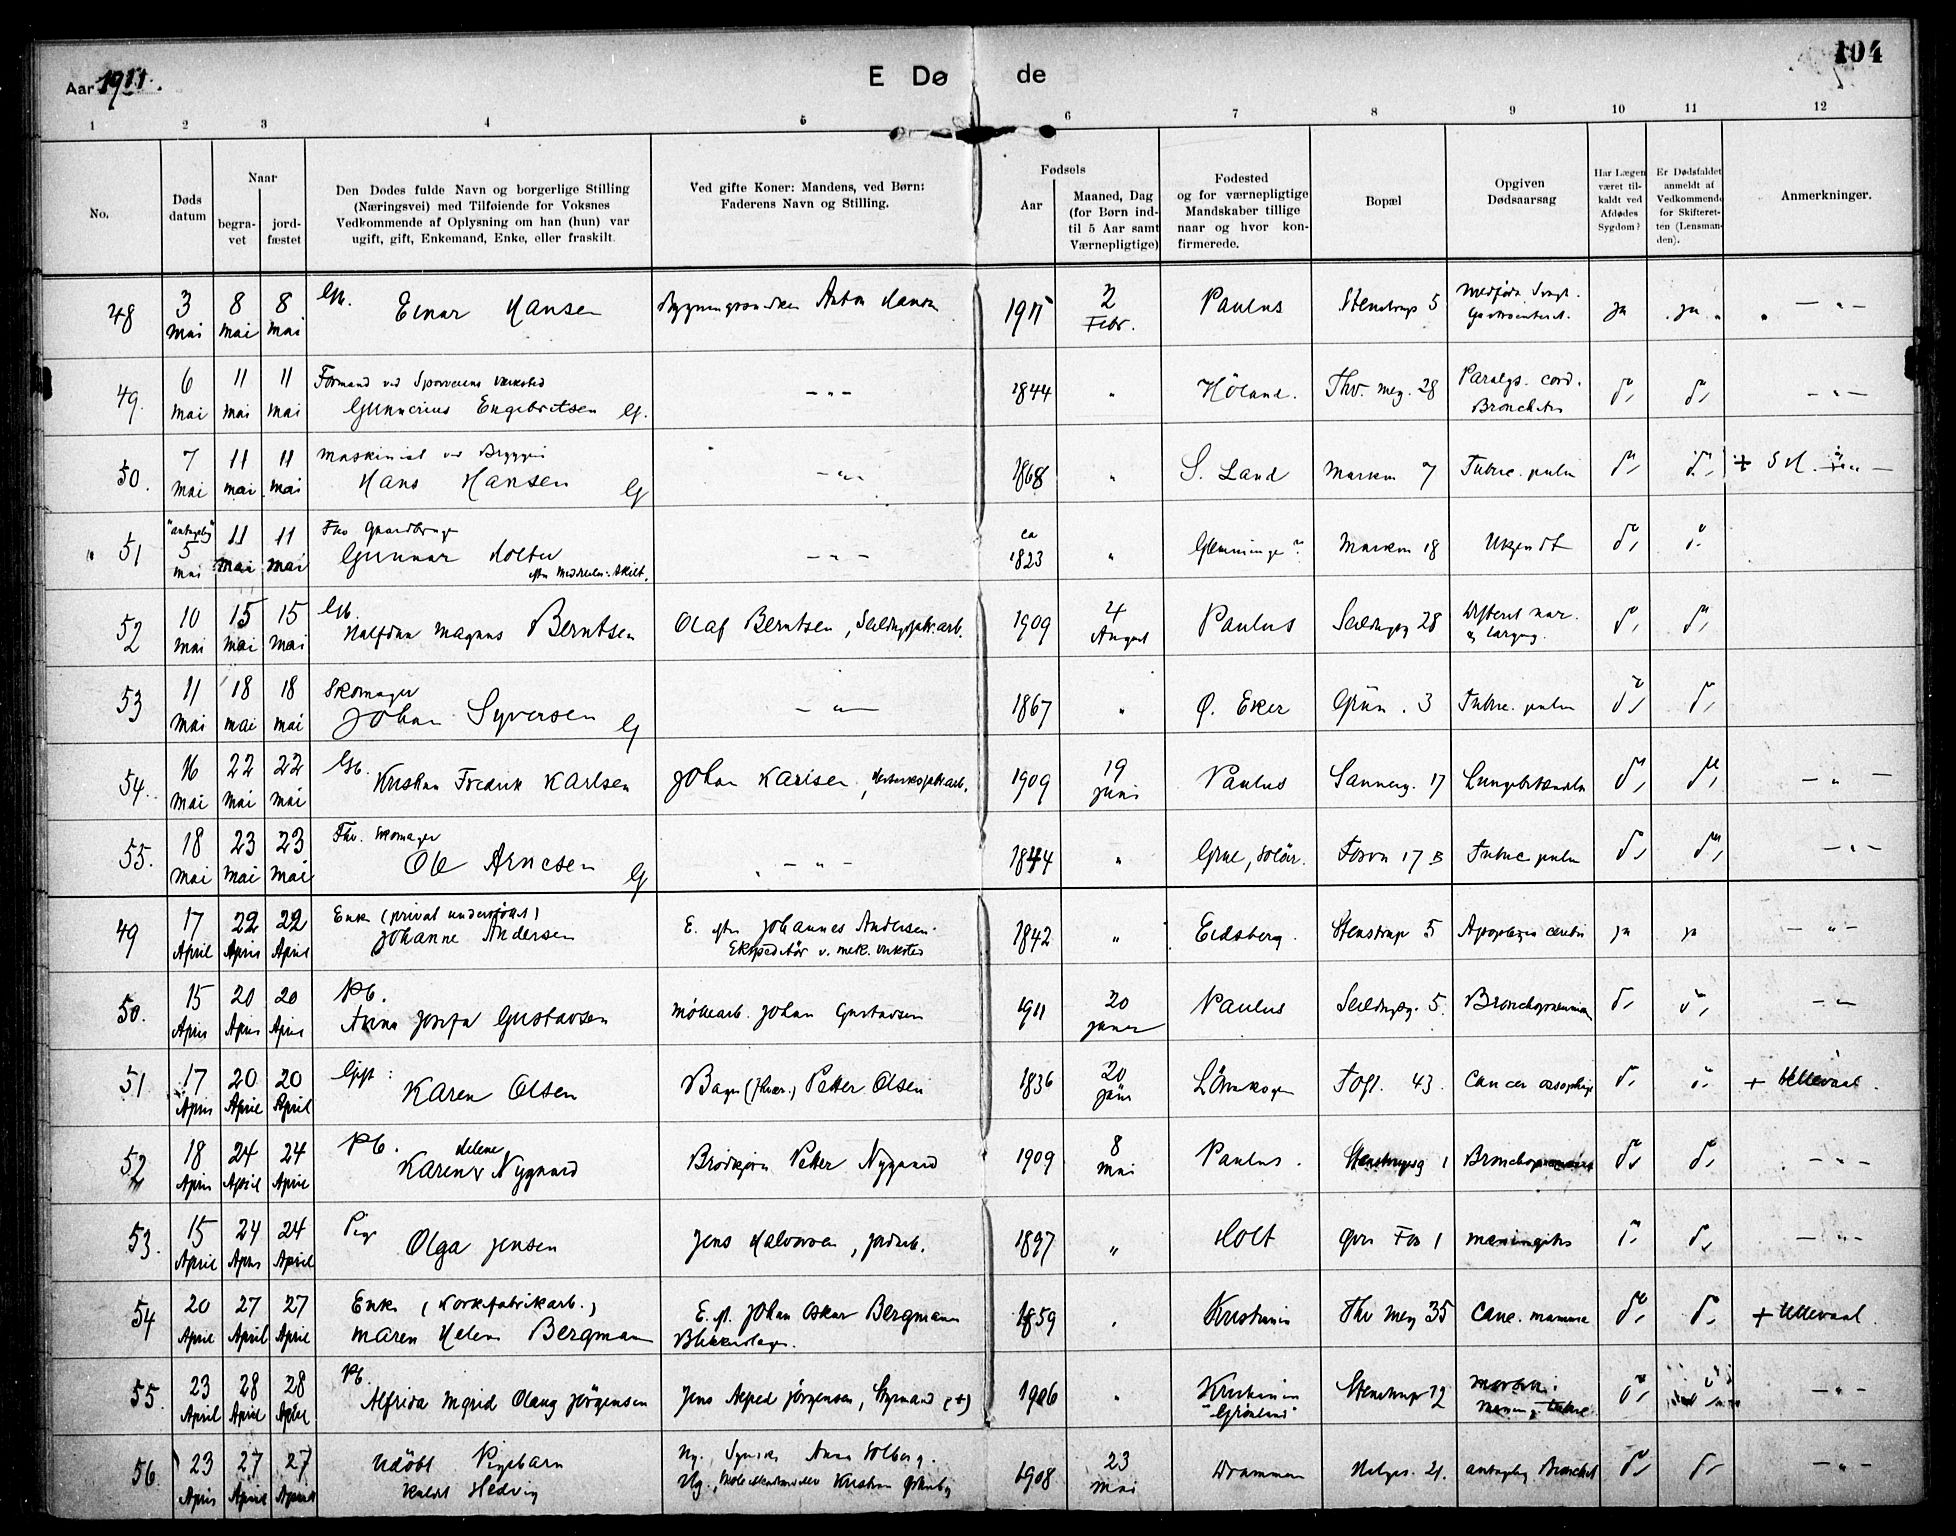 Aar 1911.
E Dø de
104
1 2 3 4 5 6 7 8 9 10 11 12
No.
Døds
datum
Naar
begra-
vet
jord-
fæstet
Den Dødes fulde Navn og borgerlige Stilling
(Næringsvei) med Tilføiende for Voksnes
Vedkommende af Oplysning om han (hun) var
ugift, gift, Enkemand, Enke, eller fraskilt.
Ved gifte Koner: Mandens, ved Børn:
Faderens Navn og Stilling.
Fødsels
Aar
Maaned, Dag
(for Børn ind-
til 5 Aar samt
Værnepligtige)
Fødested
og for værnepligtige
Mandskaber tillige
naar og hvor kon-
firmerede.
Bopæl
Opgiven
Dødsaarsag
Har Lægen
været til-
kaldt ved
Afdødes
Sygdom?
Er Dødsfaldet
anmeldt af
Vedkommende
for Skifteret-
ten (Lensman-
den).
Anmerkninger.
48 3 Mai 8 Mai 8 Mai Gb. Einar Hansen Anton Hansen 1911 2 Febr. Paulus Stenstrups 5 Medfødt Svagh. Gastroenterit. ja ja — " —
49. 6 Mai 11 Mai 11 Mai Formand ved Sporveiens Verksted
Gunnerius Engebretsen G. — " — 1844 " Høland. Thv. Mey. 28 Paralys. cord. Bronchitis do do — " —
50. 7 Mai 11 Mai 11 Mai Maskinist ved Bryggeri
Hans Hansen G — " — 1868 " S. Land Markvn 7 Tuberc. pulm do do
51 "antagelig" 5 Mai 11 Mai 11 Mai Fhv Gaardbruger
Gunnar Holter — " — ca 1823 " Glemminge? Markvn 18 Ukjendt do do
52 10 Mai 15 Mai 15 Mai Gb.
Halfdan Magnus Berntsen Olaf Berntsen, 1909 4 August Paulus 28 Difterit nar. og laryng. do do
53 11 Mai 18 Mai 18 Mai Skomager
Johan Syversen G — " — 1867 " Ø. Eker Grün. 3 Tuberc. pulm do do
54. 16 Mai 22 Mai 22 Mai Gb.
Kristian Fredrik Karlsen Johan Karlsen, 1909 19 Juni Paulus Sannerg. 17 Lungebetændelse do do — " —
55. 18 Mai 23 Mai 23 Mai Fhv. Skomager
Ole Arnesen G — " — 1844 " Grue, Solør. Fosvn 17 B Tuberc pulm do do — " —
49 17 April 22 April 22 April Enke (privat understøttet)
Johanne Andersen E. efter Johannes Andersen.
Ekspeditør v. mek. Verksted 1842 " Eidsberg. Stenstrup 5 Apoplexia cerebri ja ja — " —
50. 15 April 20 April 20 April Pb.
Anna Josefa Gustavsen Møllearb. Johan Gustavsen 1911 20 Januar Paulus 5. Bronchopneumoni do do — " —
51 17 April 20 April 20 April Gift:
Karen Olsen Petter Olsen 1836 20 Toft. 43. Cancer oesophagi do do + Ullevaal.
52 18 April 24 April 24 April Pb.
Karen Helene Nygaard Brødkjører Petter Nygaard 1909 8 Mai Paulus. Stenstrupsg 1 Bronchopneumoni do do — " —
53. 15 April 24 April 24 April Pige
Olga Jensen Jens Halvorsen, Jordarb. 1897 " Holt Øvre Fos 1 Meningitis do do — " —
54 20 April 27 April 27 April Enke (Korkefabrikarb.)
Maren Helene Bergman E. ef. Johan Oskar Bergman
Blikkenslager. 1859 " Kristiania Thv Mey 35 Canc. mammae do do + Ullevaal.
55. 23 April 28 April 28 April Pb.
Alfrida Ingrid Olaug Jørgensen Jens Alfred Jørgensen, Styrmand (+) 1906 " Kristiania "Grønland" Stenstrup 12 do — " —
56. 23 April 27 April 27 April Udøbt Pigebarn
kaldt Hedvig Ug. Syerske Anna Solberg.
Ug. Kristian 1908 23 Mai Drammen 21. antagelig Bronchit do do — " —